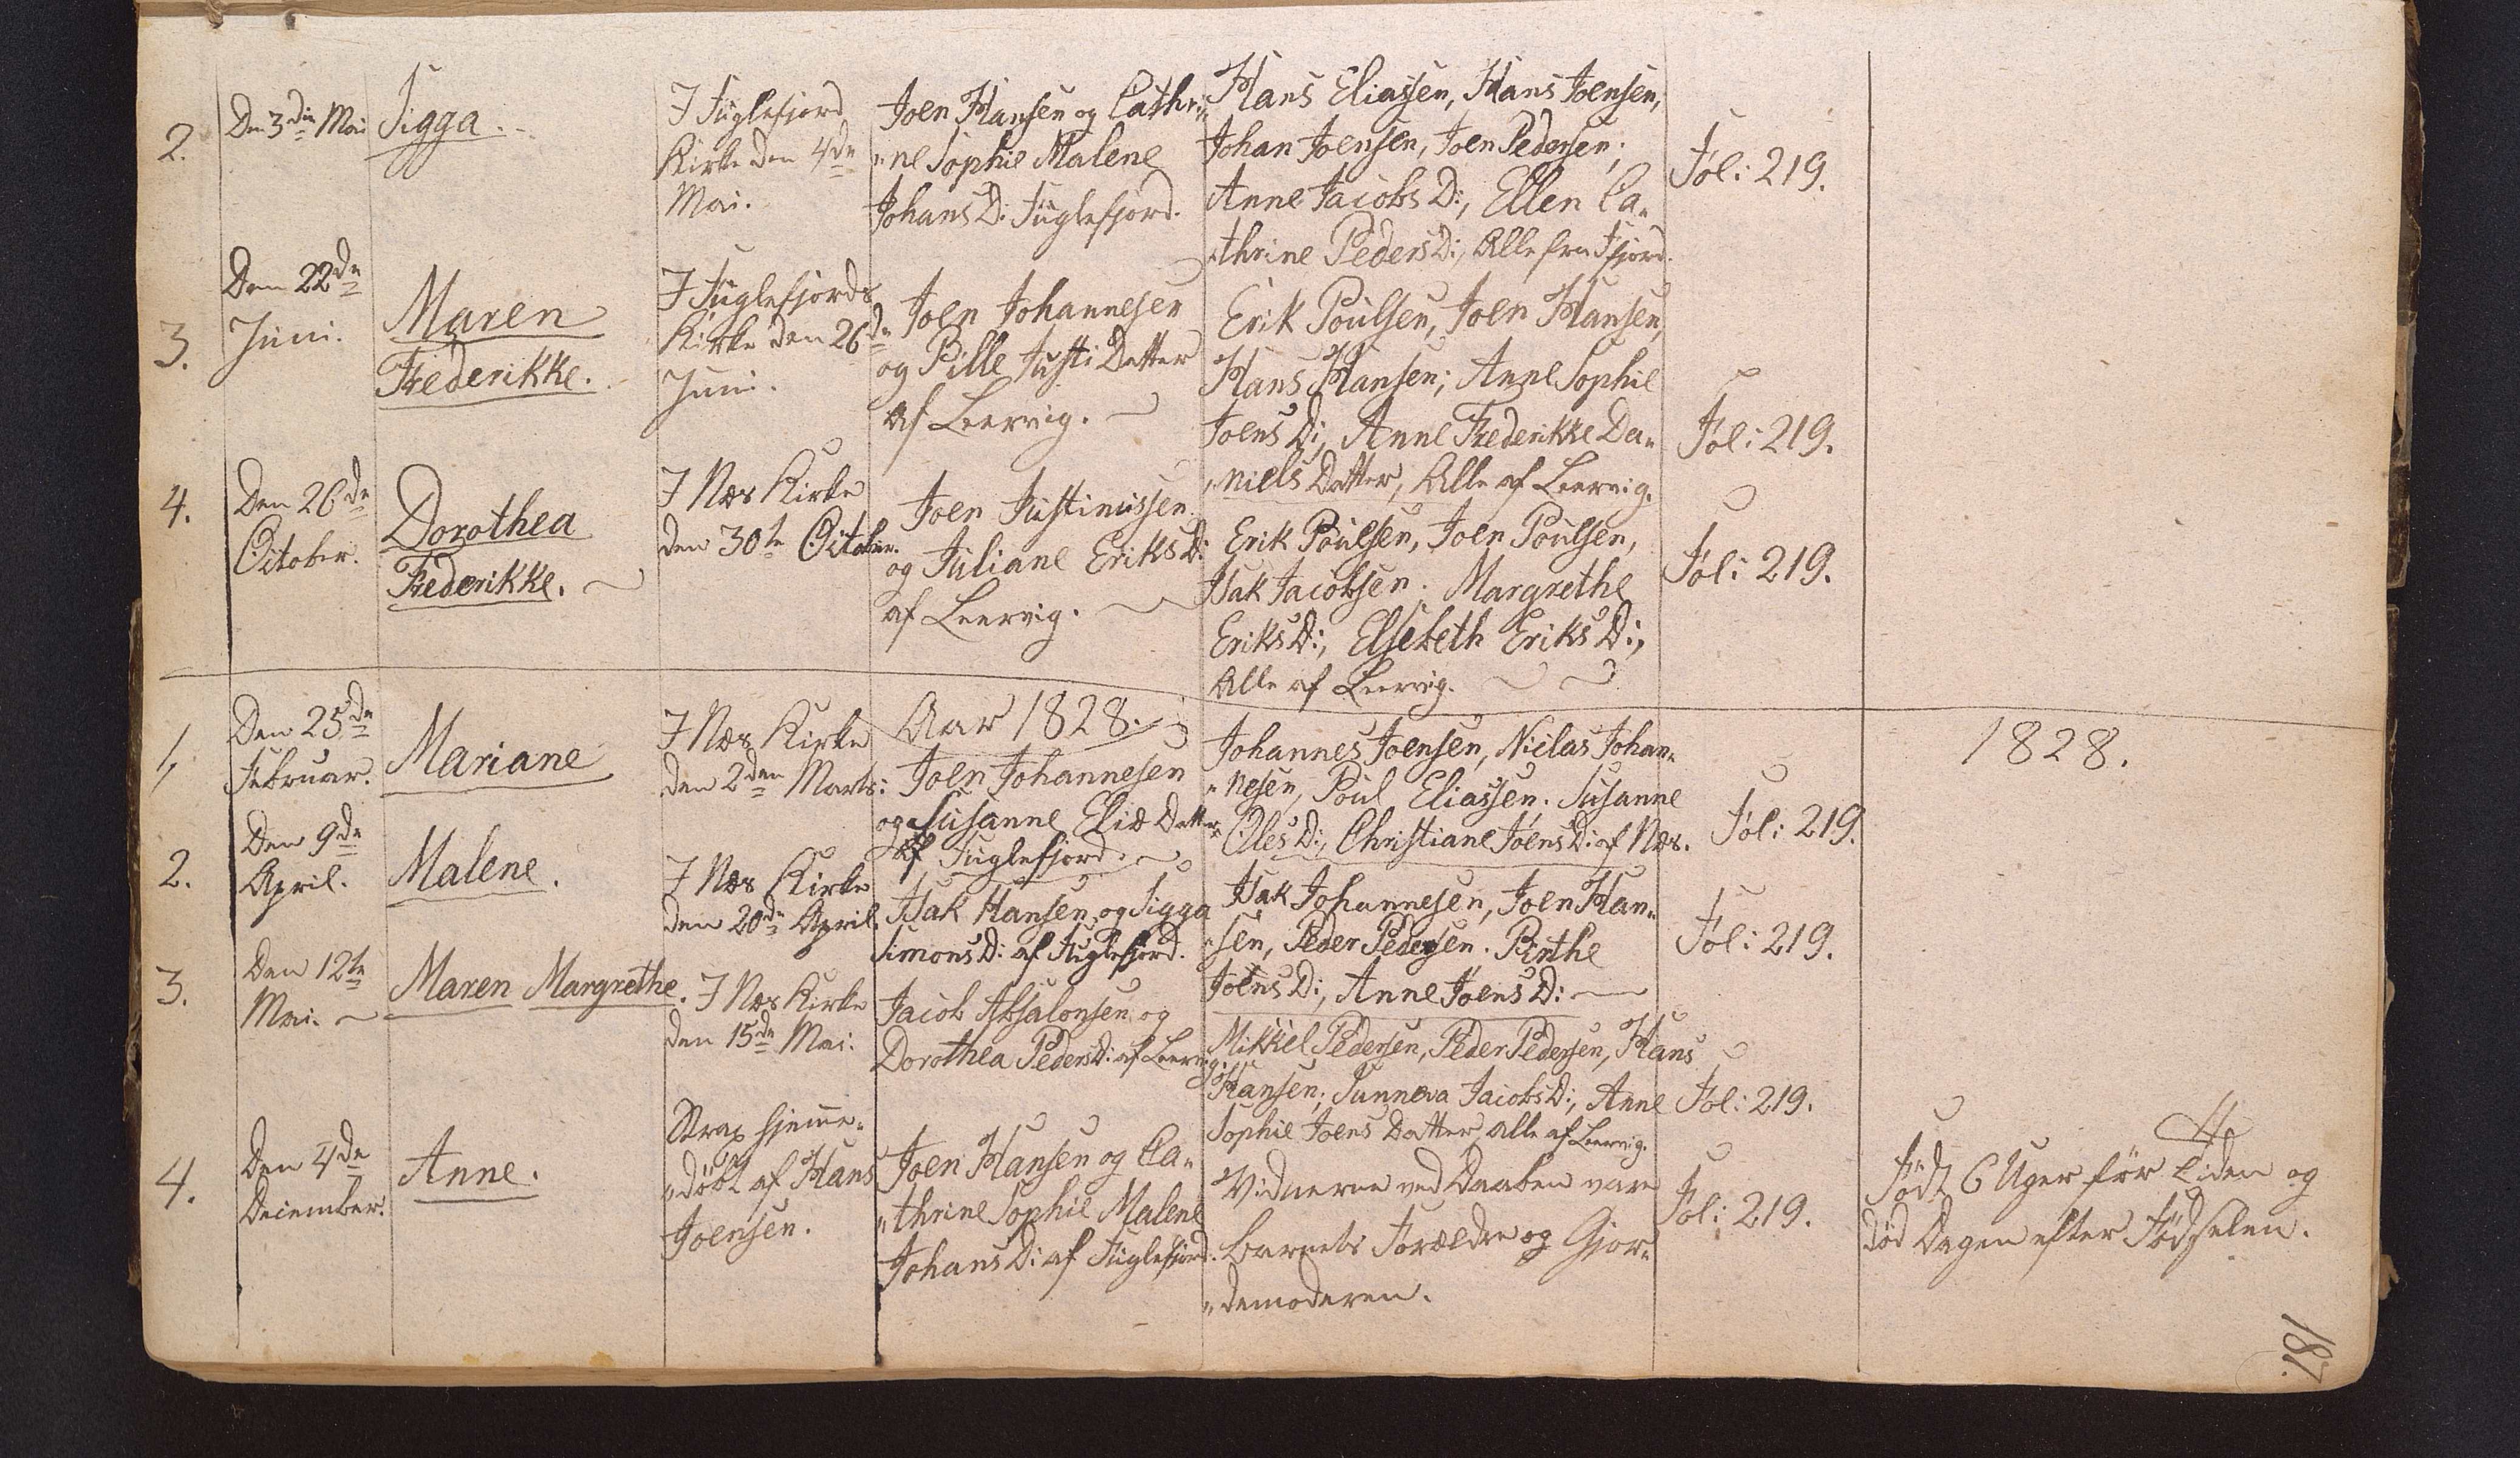 2.
Den 3die Mai
Sigga.
I Fuglefjord
Kirke den 4de
Mai.
Joen Hansen og Cathri„
„ne Sophie Malene
Johans D: Fuglefjord.
Hans Eliassen, Hans Joensen,
Johan Joensen, Joen Pedersen;
Anne Jacobs D:, Ellen Ca„
„thrine Peders D:, Alle fra Fjord.
Fol: 219.
3.
Den 22de
Juni.
Maren
Frederikke.
I Fuglefjords
Kirke den 26de
Juni.
Joen Johannesen
og Pille Justi Datter
af Leervig.
Erik Poulsen, Joen Hansen,
Hans Hansen; Anne Sophie
Joens D:, Anne Frederikke Da„
„niels Datter, Alle af Leervig.
Fol: 219.
4.
Den 26de
October.
Dorothea
Frederikke.
I Næs Kirke
den 30te October.
Joen Justinussen
og Juliane Eriks D:
af Leervig.
Erik Poulsen, Joen Poulsen,
Isak Jacobsen. Margrethe
Eriks D:, Elsebeth Eriks D:,
Alle af Leervig.
Fol: 219.
Aar 1828.
1828.
1,
Den 25de
Februar.
Mariane
I Næs Kirke
den 2den Marts:
Joen Johannesen
og Susanne Eliæ Datter
af Fuglefjord.
Johannes Joensen, Niclas Johan„
„nesen, Poul Eliassen. Susanne
Oles D:, Christiane Joens D: af Næs.
Fol: 219.
2.
Den 9de
April.
Malene.
I Næs Kirke
den 20de April.
Isak Hansen og Sigga
Simons D: af Fuglefjord.
Isak Johannesen, Joen Han„
„sen, Peder Pedersen. Birthe
Joens D:, Anne Joens D:
Fol: 219.
3.
Den 12te
Mai.
Maren Margrethe.
I Næs Kirke
den 15de Mai.
Jacob Absalonsen og
Dorothea Peders D: af Leervig.
Mikkel Pedersen, Peder Pedersen, Hans
Hansen; Sunneva Jacobs D:, Anne
Sophie Joens Datter, alle af Leervig.
Fol: 219.
4.
Den 4de
December.
Anne.
Strax hjemme„
„döbt af Hans
Joensen.
Joen Hansen og Ca„
„thrine Sophie Malene
Johans D: af Fuglefjord.
Vidnerne ved Daaben vare
Barnets Forældre og Gjor„
„demoderen.
Fol: 219.
4
Födt 6 Uger för Tiden og
död Dagen efter Födselen.
187.